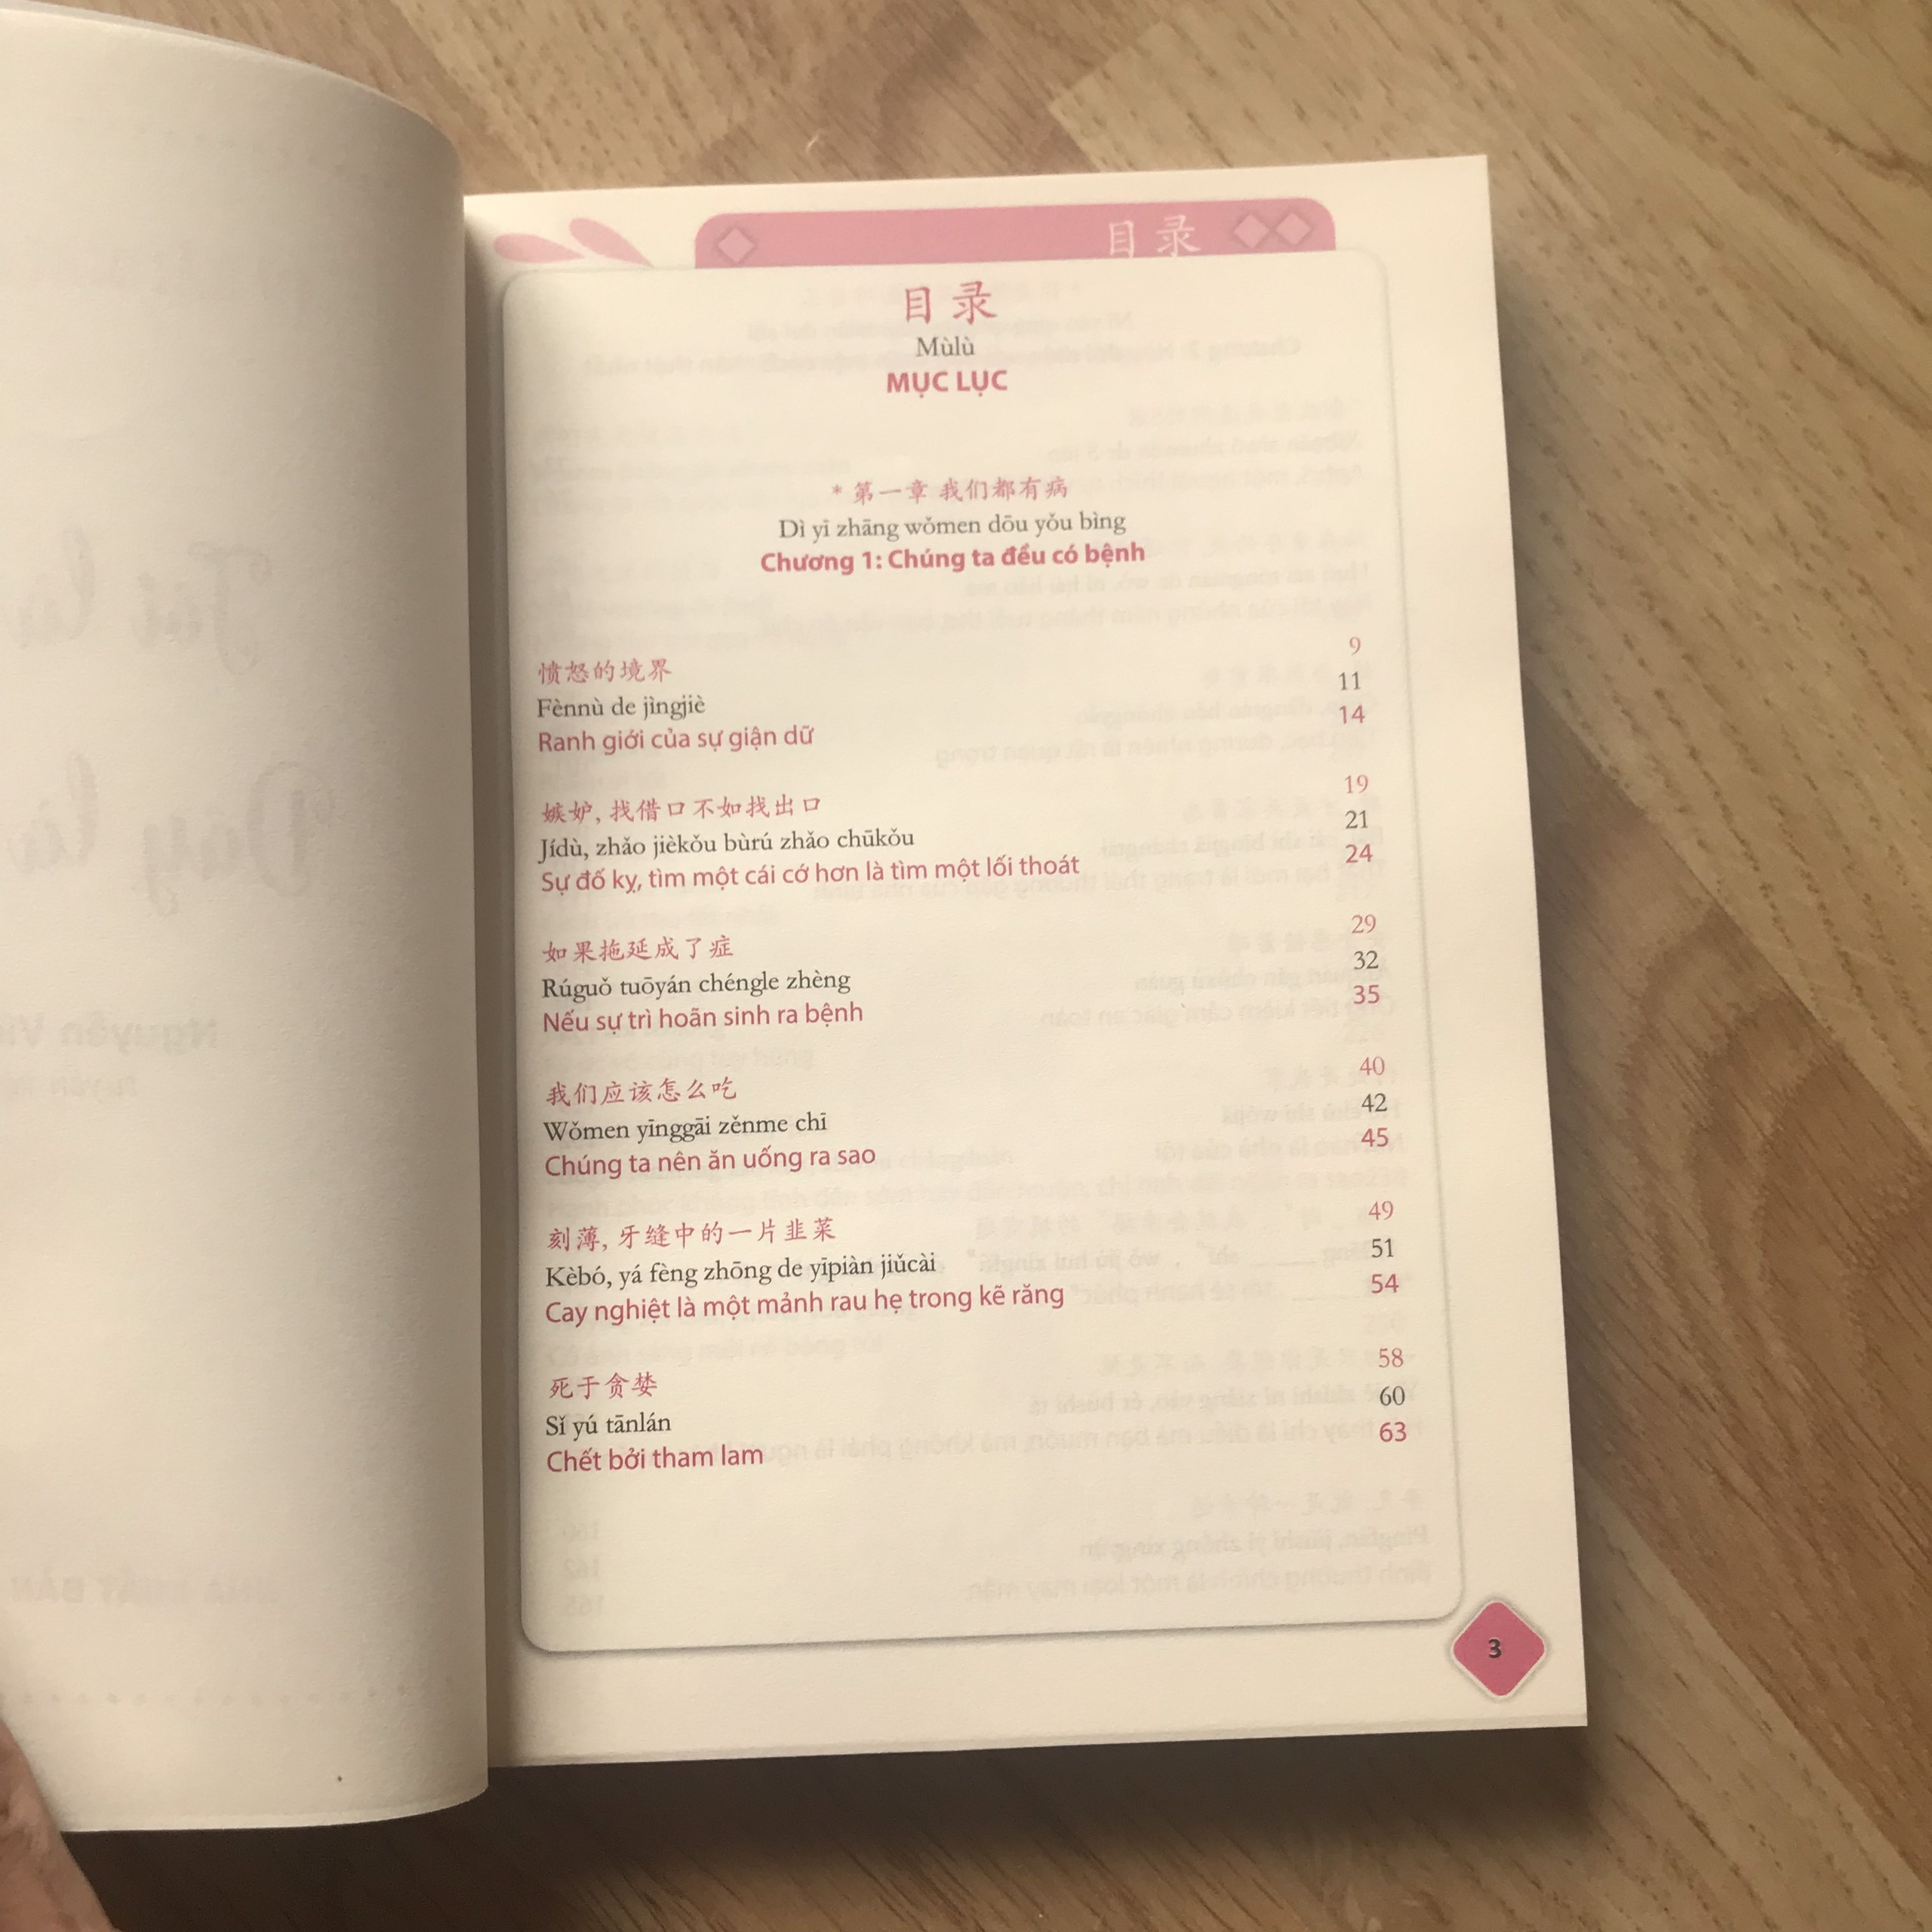 目录
目录
Mùlù
MỤC LỤC
* 第一章 我们都有病
Dì yī zhāng wǒmen dōu yǒu bìng
Chương 1: Chúng ta đều có bệnh
愤怒的境界 9
Fènnù de jìngjiè 11
Ranh giới của sự giận dữ 14
嫉妒, 找借口不如找出口 19
Jídù, zhǎo jièkǒu bùrú zhǎo chūkǒu 21
Sự đố kỵ, tìm một cái cớ hơn là tìm một lối thoát 24
如果拖延成了症 29
Rúguǒ tuōyán chéngle zhèng 32
Nếu sự trì hoãn sinh ra bệnh 35
我们应该怎么吃 40
Wǒmen yīnggāi zěnme chī 42
Chúng ta nên ăn uống ra sao 45
刻薄, 牙缝中的一片韭菜 49
Kèbó, yá fèng zhōng de yīpiàn jiǔcài 51
Cay nghiệt là một mảnh rau hẹ trong kẽ răng 54
死于贪婪 58
Sǐ yú tānlán 60
Chết bởi tham lam 63
3